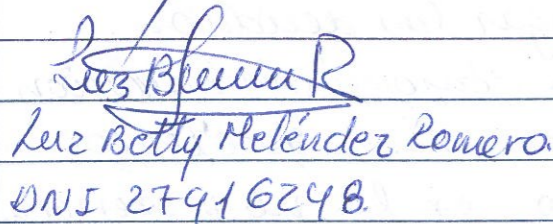 Luz B
Luz Betty Meléndez Romero.
DNI 27916248.